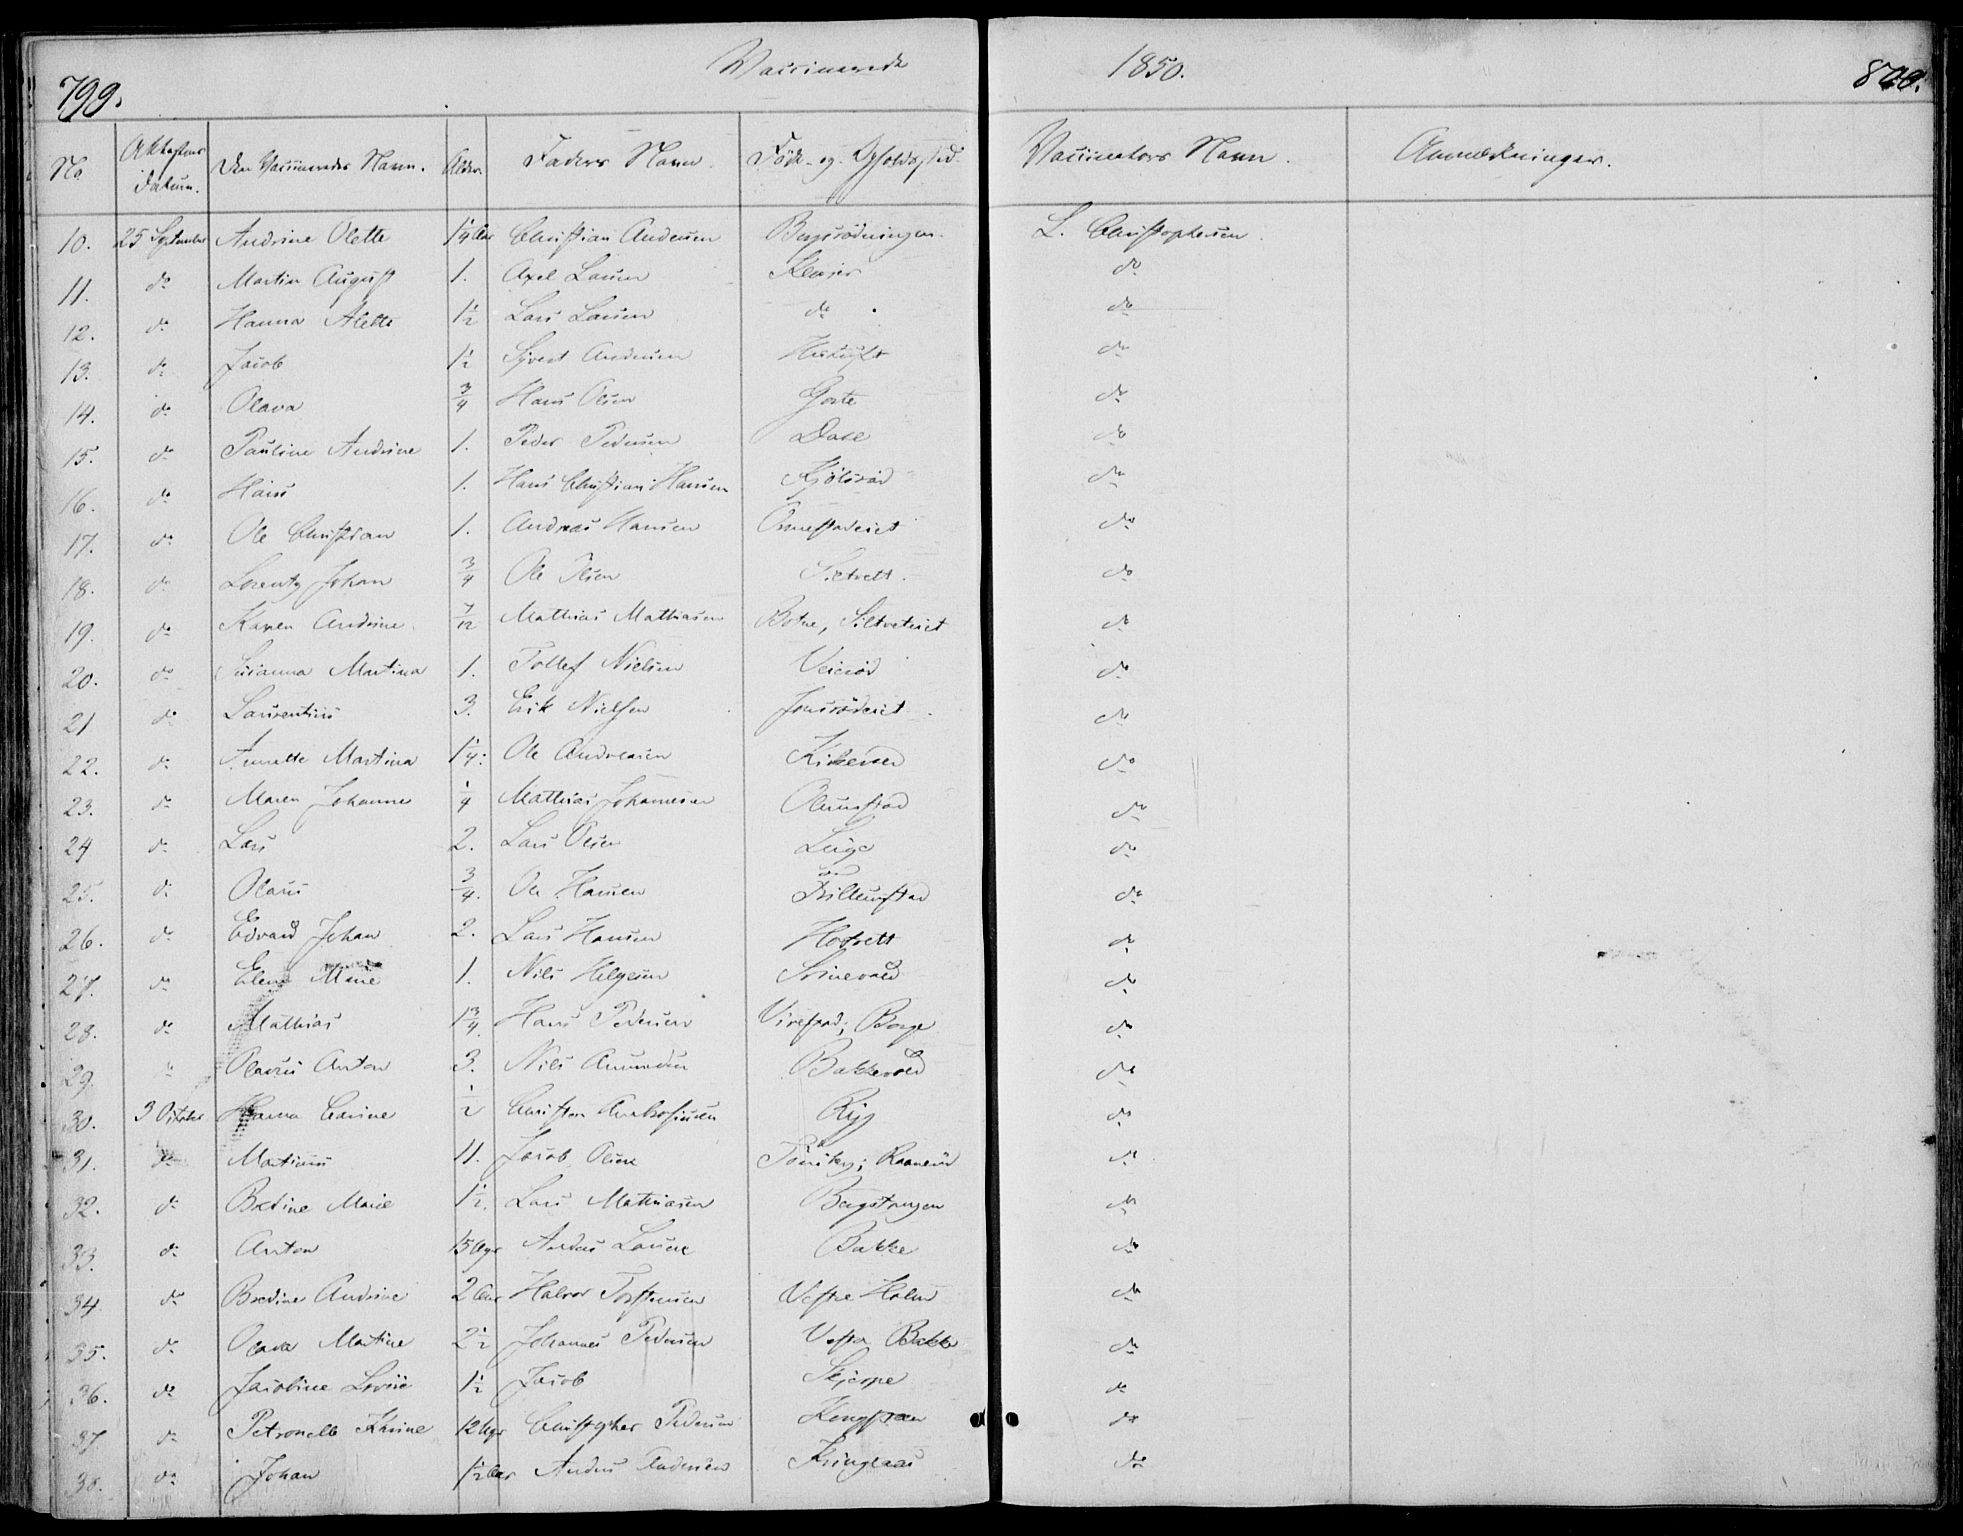 799. Vaccinerede 1850. 800.
No Attestens Datum. Den Vaccineredes Navn. Alder. Faders Navn. Føde- og Opholdssted. Vaccinators Navn. Anmærkninger.
10. 25 September Andrine Olette 1¼ Aar Christian Andersen Bergsrødningen. L. Christophersen
11. do Martin August 1. Axel Larsen Klever do
12. do Hanna Alette 1½ Lars Larsen do do
13. do Jacob 1½ Syvert Andersen do
14. do Olava ¾ Hans Olsen do
15. do Pauline Andrine 1. Peder Pedersen do
16. do Hans 1. Hans Christian Hansen do
17. do Ole Christian 1. Andreas Hansen do
18. do Lorentz Johan ¾ Ole Olsen do
19. do Karen Andrine 7/12 Mathias Mathiasen Botne, do
20. do Susanna Martina 1. Tollef Nielsen do
21 do Laurentius 3. Erik Nielsen do
22. do Annette Martina 1¼ Ole Andreasen do
23. do Maren Johanne ¼ Mathias Johannesen do
24 do Lars 2. Lars Olsen do
25. do Olaus ¾. Ole Hansen do
26. do Edvard Johan 2. Lars Hansen do
27. do Elene Marie 1. Nils Helgesen do
28. do Mathias 1¾. Hans Pedersen Virestad; Borge do
29. do Olavus Anton 3. Nils Amundsen Bakkevold do
30. 3 October Hanna Carine ½ Christen do
31. do Martinus 11. Jacob Olsen Tønsberg; do
32. do Bredine Marie 1½. Lars Mathiasen do
33. do Anton 15 Uger Anders Larsen Bakke do
34 do Bredine Andrine 2 Aar Halvor Torstensen Vestre Holm do
35. do Olava Martine 2½ Johannes Pedersen Vestre Bakke do
36. do Jacobine Lovise 1½ Jacob Skjerpe do
37 do Petronelle Karine 12 Uger Christopher Pedersen do
38. do Johan 1½ Aar Anders Andersen do